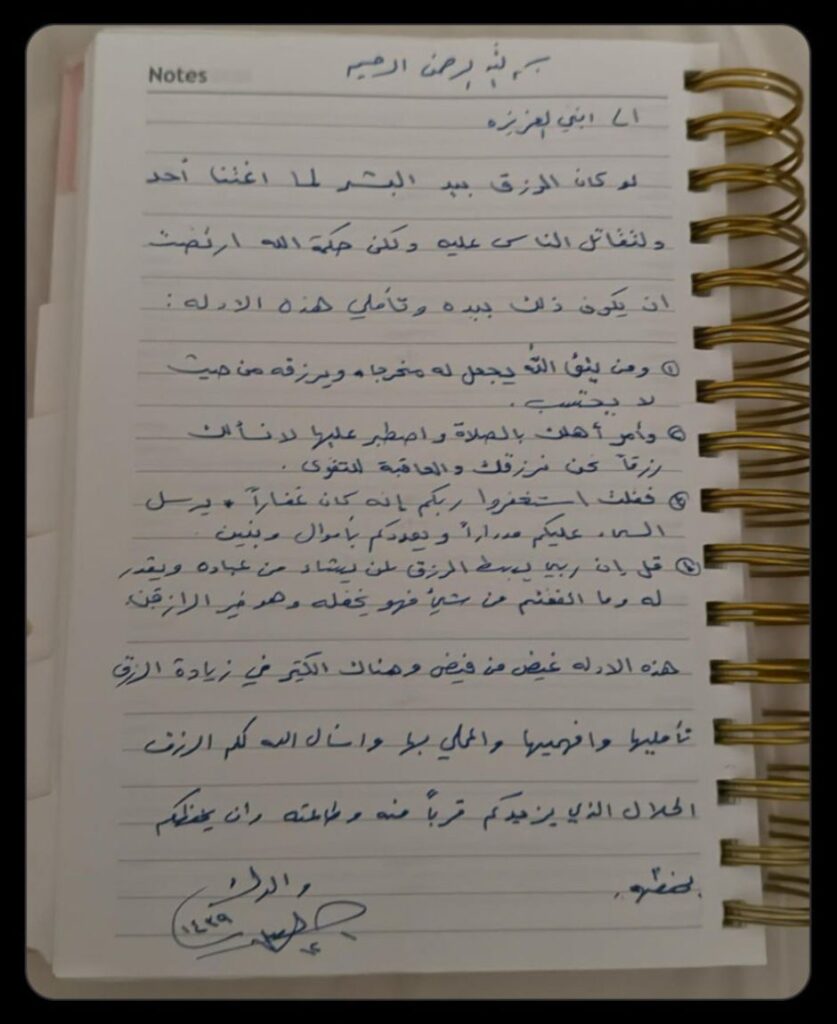 Notes
بسم الله الرحمن الرحيم
الى ابنتي العزيزه
لو كان الرزق بيد البشر لما اغتنا أحد
ولتقاتل الناس عليه ولكن حكمة الله ارتضت
ان يكون ذلك بيده وتأملي هذه الادله :
① ومن يتق الله يجعل له مخرجا * ويرزقه من حيث
لا يحتسب .
② وأمر أهلك بالصلاة واصطبر عليها لا نسألك
رزقاً نحن نرزقك والعاقبة للتقوى .
③ فقلت استغفروا ربكم إنه كان غفاراً * يرسل
السماء عليكم مدراراً ويمددكم بأموال وبنين .
④ قل إن ربي يبسط الرزق لمن يشاء من عباده ويقدر
له وما انفقتم من شيئ فهو يخلفه وهو خير الرازقين .
هذه الادله غيض من فيض وهناك الكثير في زيادة الرزق
تأمليها وافهميها واعملي بها واسأل الله لكم الرزق
الحلال الذي يزيدكم قرباً منه وطاعته وان يحفظكم
بحفظه .
والدك
١٤٣٩